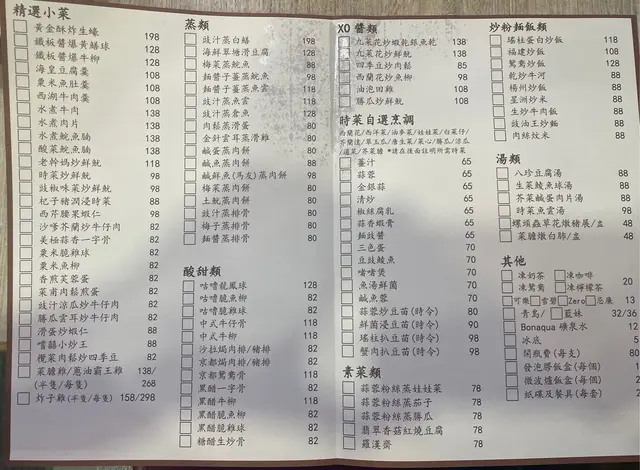 精選小菜
黃金酥炸生蠔 198
鐵板醬爆黃鱔球 128
鐵板醬爆牛柳 128
海皇豆腐羹 108
粟米魚肚羹 108
西湖牛肉羹 108
水煮牛肉 138
水煮肉片 138
水煮鯇魚腩 138
酸菜鯇魚腩 138
老幹媽炒鮮魷 118
時菜炒鮮魷 98
豉椒味菜炒鮮魷 98
杞子豬潤浸時菜 88
西芹腰果蝦仁 98
沙嗲芥蘭炒牛仔肉 82
美極蒜香一字骨 82
粟米脆雞球 82
粟米魚柳 98
香煎芙蓉蛋 82
菜甫肉鬆煎蛋 82
豉汁涼瓜炒牛仔肉 82
勝瓜雲耳炒牛仔肉 82
滑蛋炒蝦仁 88
嚐囍小炒王 88
欖菜肉鬆炒四季豆 82
菜膽雞/蔥油霸王雞 138/
(半隻/每隻) 268
炸子雞(半隻/每隻) 158/298
蒸類
豉汁蒸白鱔 198
海鮮翠塘滑豆腐 128
梅菜蒸鯇魚 88
麵醬子薑蒸鯇魚 88
麵醬子薑蒸魚雲 118
豉汁蒸魚雲 118
豉汁蒸倉魚 128
肉鬆蒸滑蛋 80
金針雲耳蒸滑雞 80
鹹蛋蒸肉餅 80
鹹魚蒸肉餅 80
鹹鮮魚(馬友)蒸肉餅 98
梅菜蒸肉餅 80
土魷蒸肉餅 80
豉汁蒸排骨 80
梅子蒸排骨 80
麵醬蒸排骨 80
酸甜類
咕嚕龍鳳球 128
咕嚕脆魚柳 82
咕嚕脆雞球 82
中式牛仔骨 118
中式牛柳 118
沙拉焗肉排/豬排 82
京都焗肉排/豬排 82
京都鴛鴦骨 118
黑醋一字骨 82
黑醋牛柳 118
黑醋脆魚柳 82
黑醋脆雞球 82
糖醋生炒骨 82
XO醬類
九菜花炒蝦乾銀魚乾 138
九菜花炒鮮魷 138
四季豆炒肉鬆 85
西蘭花炒魚柳 98
油泡田雞 108
勝瓜炒鮮魷 108
時菜自選烹調
西蘭花/西洋菜/油麥菜/娃娃菜/白菜仔/
芥蘭㨴/翠玉瓜/唐生菜/菜心/勝瓜/涼瓜
/蓬菜/芥菜膽 *請在後面註明所需時菜
薑汁 65
蒜蓉 65
金銀蒜 65
清炒 65
椒絲腐乳 65
蒜香蝦膏 65
麵豉醬 65
三色蛋 70
豆豉鯪魚 70
啫啫煲 70
魚湯鮮菌 70
鹹魚蓉 70
蒜蓉炒豆苗(時令) 80
鮮菌浸豆苗(時令) 90
瑤柱扒豆苗(時令) 98
蟹肉扒豆苗(時令) 98
素菜類
蒜蓉粉絲蒸娃娃菜 78
蒜蓉粉絲蒸茄子 78
蒜蓉粉絲蒸勝瓜 78
翡翠香菇紅燒豆腐 78
羅漢齋 78
炒粉麵飯類
瑤柱蛋白炒飯 118
福建炒飯 108
鴛鴦炒飯 128
乾炒牛河 88
楊州炒飯 88
星洲炒米 88
生炒牛肉飯 88
豉油王炒麵 88
肉絲炆米 88
湯類
八珍豆腐湯 88
生菜鯪魚球湯 88
芥菜鹹蛋肉片湯 88
時菜魚雲湯 98
螺頭蟲草花燉豬展/盅 48
菜膽燉白肺/盅 48
其他
凍奶茶 凍咖啡
凍鴛鴦 凍檸檬茶 20
可樂 雪碧 Zero 忌廉 13
青島/ 藍妹 32/36
Bonaqua 礦泉水 12
冰底 5
開瓶費(每支) 80
發泡膠飯盒(每個) 1
微波爐飯盒(每個)
紙碟及餐具(每套)